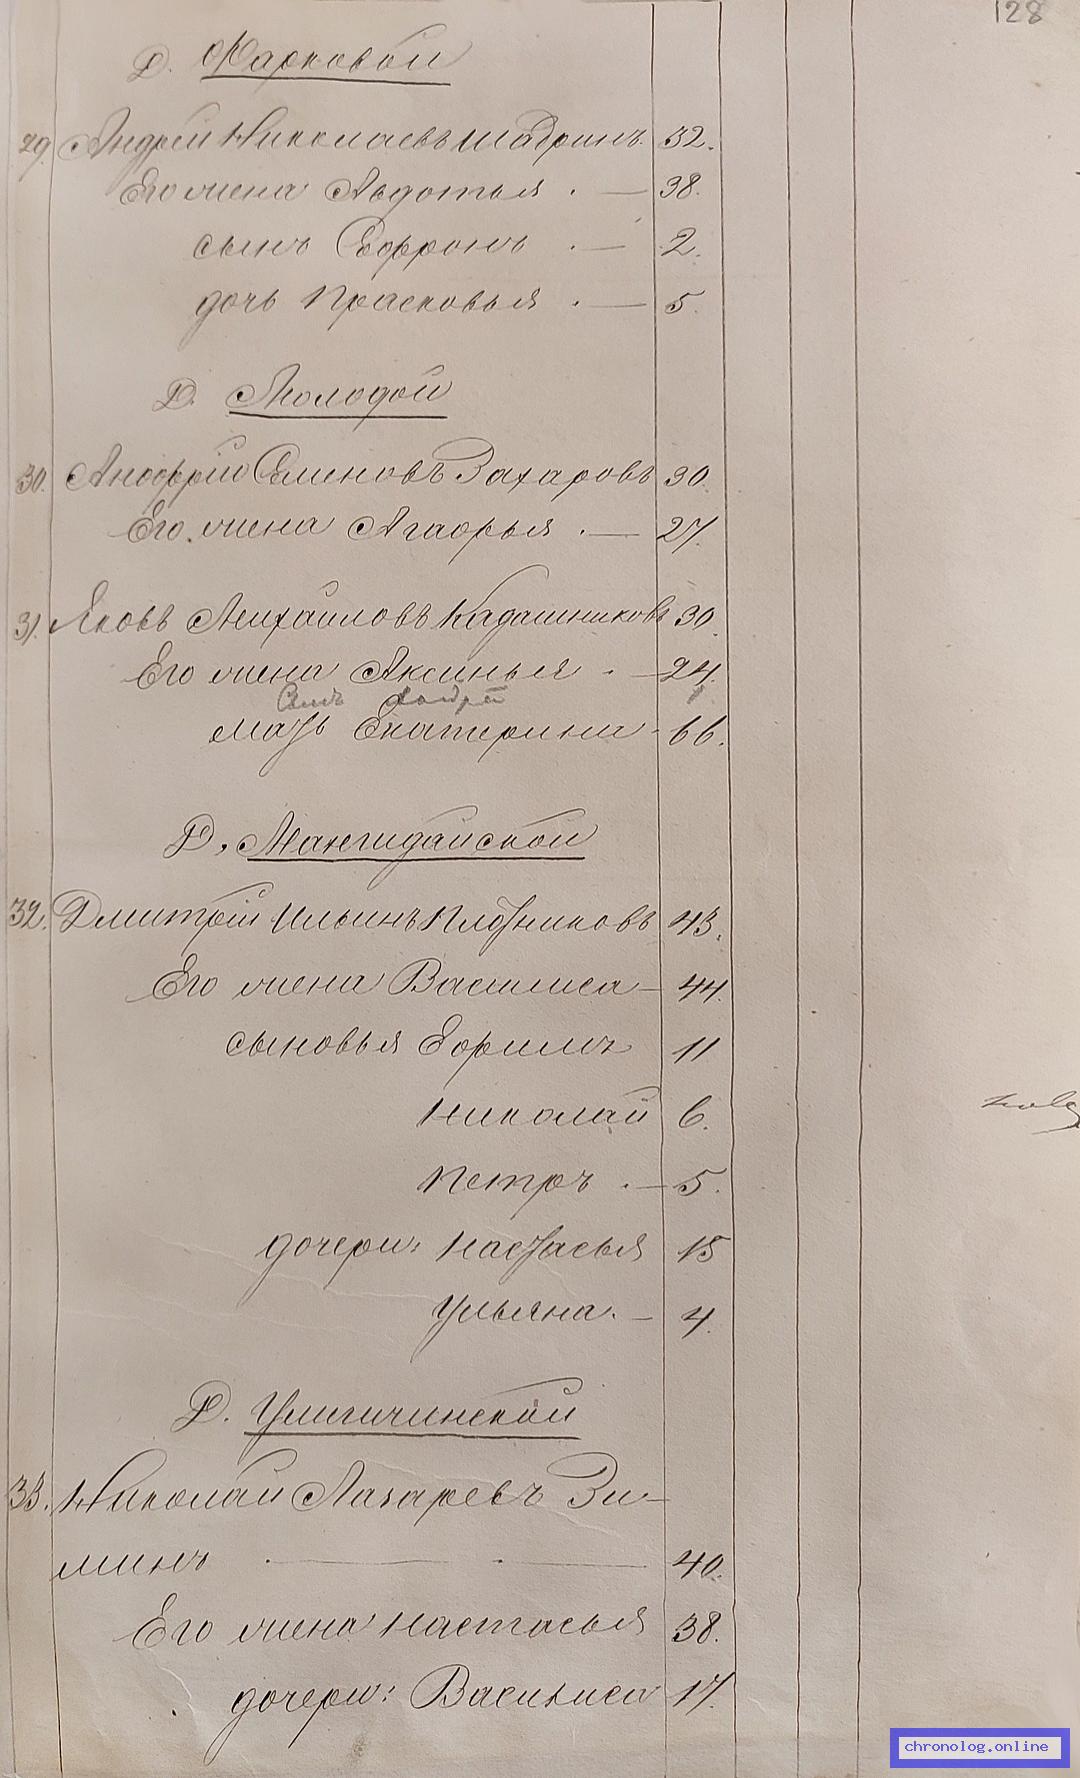 128
Д. Фарковой
29. Андрей Николаевъ Шадринъ. 32.
Его жена Авдотья . — 38.
сынъ Софронъ . — 2.
дочь Прасковья . — 5.
Д. Молодой
30. Андрей Семеновъ Захаровъ 30.
Его жена Агафья . — 27.
31. Яковъ Михайловъ Кадашниковъ 30.
Его жена Аксинья . — 24.
Сынъ Андрей
мать Екатерина - 66.
Д. Мангидайской
32. Дмитрій Ильинъ Плотниковъ 43.
Его жена Василиса — 44.
сыновья Ефимъ 11
Николай 6.
Петръ . — 5.
дочери: Настасья 15
Ульяна. — 4.
Д. Улигичинской
33. Николай Лазаревъ Зи-
минъ . — . — 40.
Его жена Настасья 38.
дочери: Василиса 17.
chronolog.online